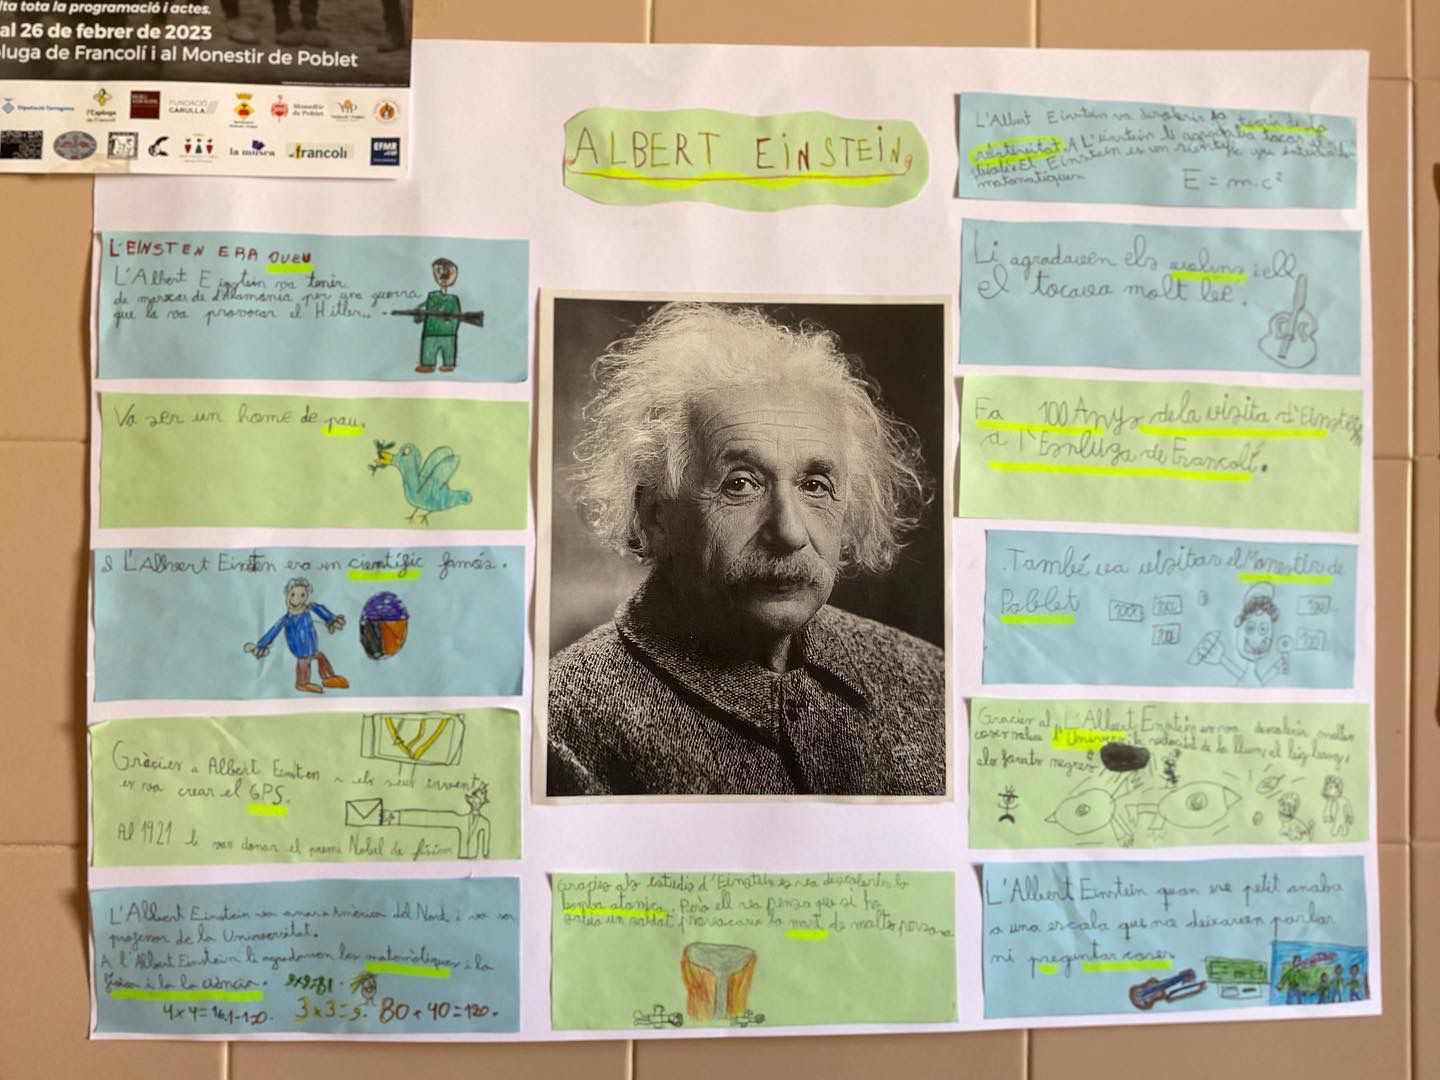 ta tota la programació i actes.
al 26 de febrer de 2023
luga de Francolí i al Monestir de Poblet
Diputació Tarragona
l'Espluga de Francolí
FUNDACIÓ CARULLA
Monestir de Poblet
la musca
francolí
EFMR
ALBERT EiNSTEiN
L'EINSTEN ERA
L'Albert Einstein va
de marxar de d'Alamania per una guerra
que la va provocar el Hitler.
Va ser un home de pau.
L'Albert Einsten era un científic famós.
Gràcies a Albert Einsten i els seus invents
es va crear el GPS.
Al 1921 li van donar el premi Nobel de física
L'Albert Einstein va anar a Amèrica del Nord i va ser
profesor de la Universitat.
A l'Albert Einstein li agradaven les matemàtiques i la
física i la ciència.
9x9=81.
4x4=16.
3x3=9.
80+40=120.
Gràcies als estudis d'Einstein es va descobrir la
bomba atomica. Però ell va pensa que si ho
un soldat provocaria la mort de molts persons
L'Albert Einstein va descobrir la teoria de la
relativitat. A L'einstein li agradaba tocar el
violí. El Einstein es un
matematiques
E = m.c²
Li agradaven els violins i ell
el tocava molt bé.
Fa 100 Anys de la visita d'Einstein
a l'Espluga de Francolí.
També va visitar el Monestir de
Poblet
100
Gracies al L'Albert Einstein es va descobrir moltes
coses sobre l'Univers: la velocitat de la llum, el big bang,
els forats negres
L'Albert Einstein quan era petit anaba
a una escola que no deixaven parlar
ni preguntar coses